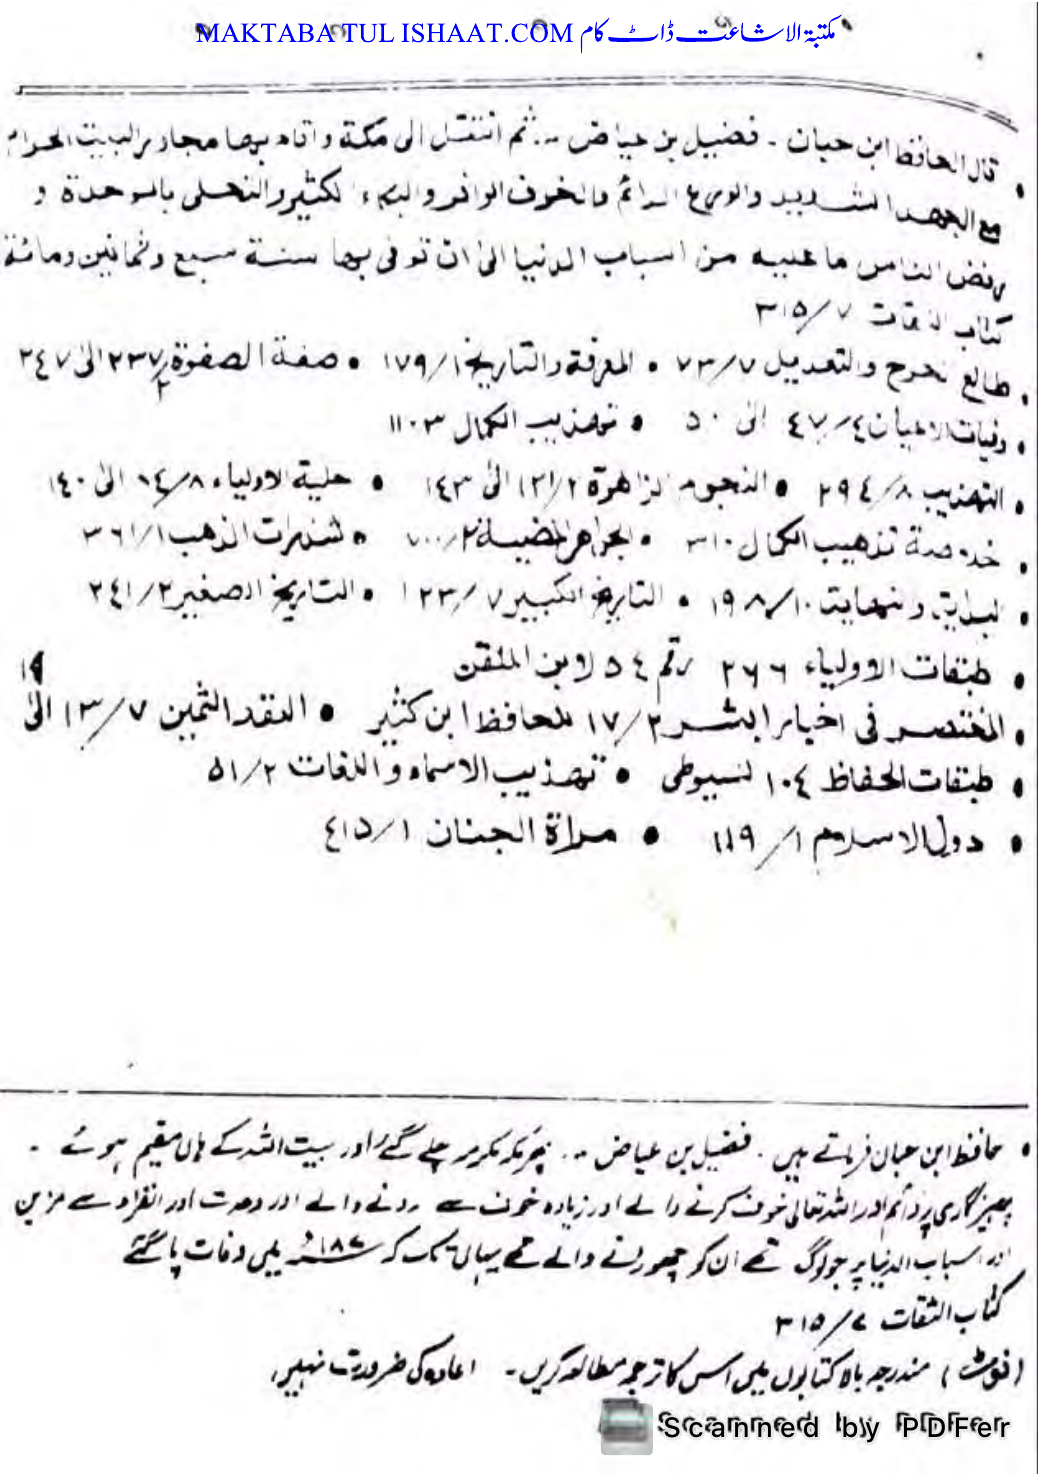 MAKTABA TUL ISHAAT.COM مکتبۃ الاشاعت ڈاٹ کام
• قال الحافظ ابن حبان - فضيل بن عياض ... ثم انتقل الى مكة واقام بها مجاور البيت الحرام
مع الجهد الشديد والورع الدائم والخوف الوافر والبكاء الكثير والتخلى بالوحدة و
رفض الناس ما عليه من اسباب الدنيا الى ان توفى بها سنة سبع وثمانين ومائة
كتاب الثقات ٧/٣١٥
• طالع الجرح والتعديل ٧/٧٣ • المعرفة والتاريخ ١/١٧٩ • صفة الصفوة ٢/٢٣٧ الى ٢٤٧
• وفيات الاعيان ٤/٤٧ الى ٥٠ • تهذيب الكمال ١١٠٣
• التهذيب ٨/٢٩٤ • النجوم الزاهرة ٢/١٢١ الى ١٤٣ • حلية الاولياء ٨/٨٤ الى ١٤٠
• خلاصة تذهيب الكمال ٣١٠ • الجواهر المضيئة ٢/٧٠٠ • شذرات الذهب ١/٣٦١
• البداية و نهايت ١٠/١٩٨ • التاريخ الكبير ٧/١٢٣ • التاريخ الصغير ٢/٢٤١
• طبقات الاولياء ٢٦٦ رقم ٥٤ لابن الملقن
• المختصر فى اخبار البشر ٢/١٧ للحافظ ابن كثير • العقد الثمين ٧/١٣ الى ١٩
• طبقات الحفاظ ١٠٤ لسيوطى • تهذيب الاسماء و اللغات ٢/٥١
• دول الاسلام ١/١١٩ • مراة الجنان ١/٤١٥
• حافظ ابن حبان فرماتے ہیں۔ فضیل بن عیاض ... پھر مکہ مکرمہ چلے گئے اور بیت اللہ کے ہاں مقیم ہوئے۔
پرہیزگاری پر دائم اور اللہ تعالی خوف کرنے والے اور زیادہ خوف سے رونے والے اور وحدت اور انفراد سے مزین
اور اسباب الدنیا پر جو لوگ تھے ان کو چھوڑنے والے تھے یہاں تک کہ ۱۸۷ھ میں وفات پا گئے
کتاب الثقات ۷/۳۱۵
(نوٹ) مندرجہ بالا کتابوں میں اس کا ترجمہ مطالعہ کریں۔ اعادہ کی ضرورت نہیں،
Scanned by PDFer